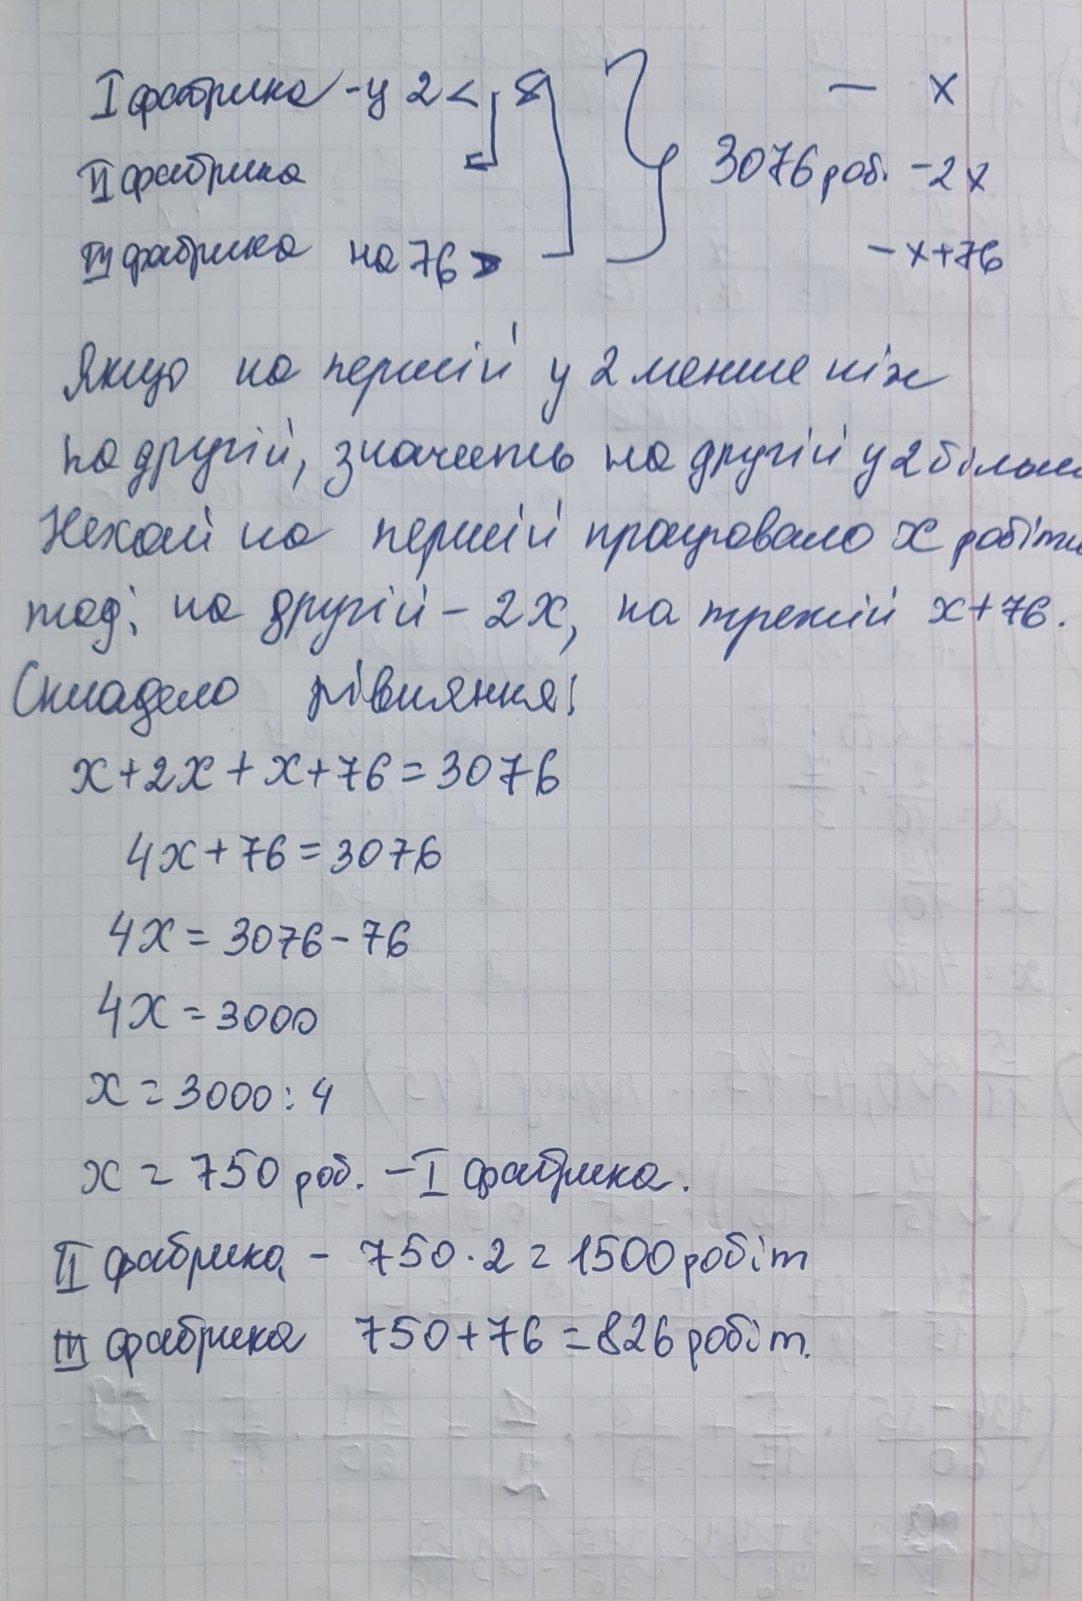 I фабрика - у 2 < — x
II фабрика 3076 роб. - 2x
III фабрика на 76 > - x+76
Якщо на першій у 2 менше ніж
на другій, значить на другій у 2 більше
Нехай на першій працювало x робітн
тоді на другій - 2x, на третій x+76.
Складемо рівняння:
x+2x+x+76=3076
4x+76=3076
4x=3076-76
4x=3000
x=3000:4
x=750 роб. - I фабрика.
II фабрика - 750·2=1500 робіт
III фабрика 750+76=826 робіт.